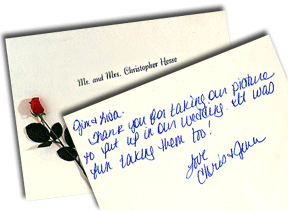 Mr. and Mrs. Christopher Hesse
Jim & Lisa.
Thank you for taking our picture
to put up in our wedding. It was
fun taking them too!
Love
Chris & Jenn